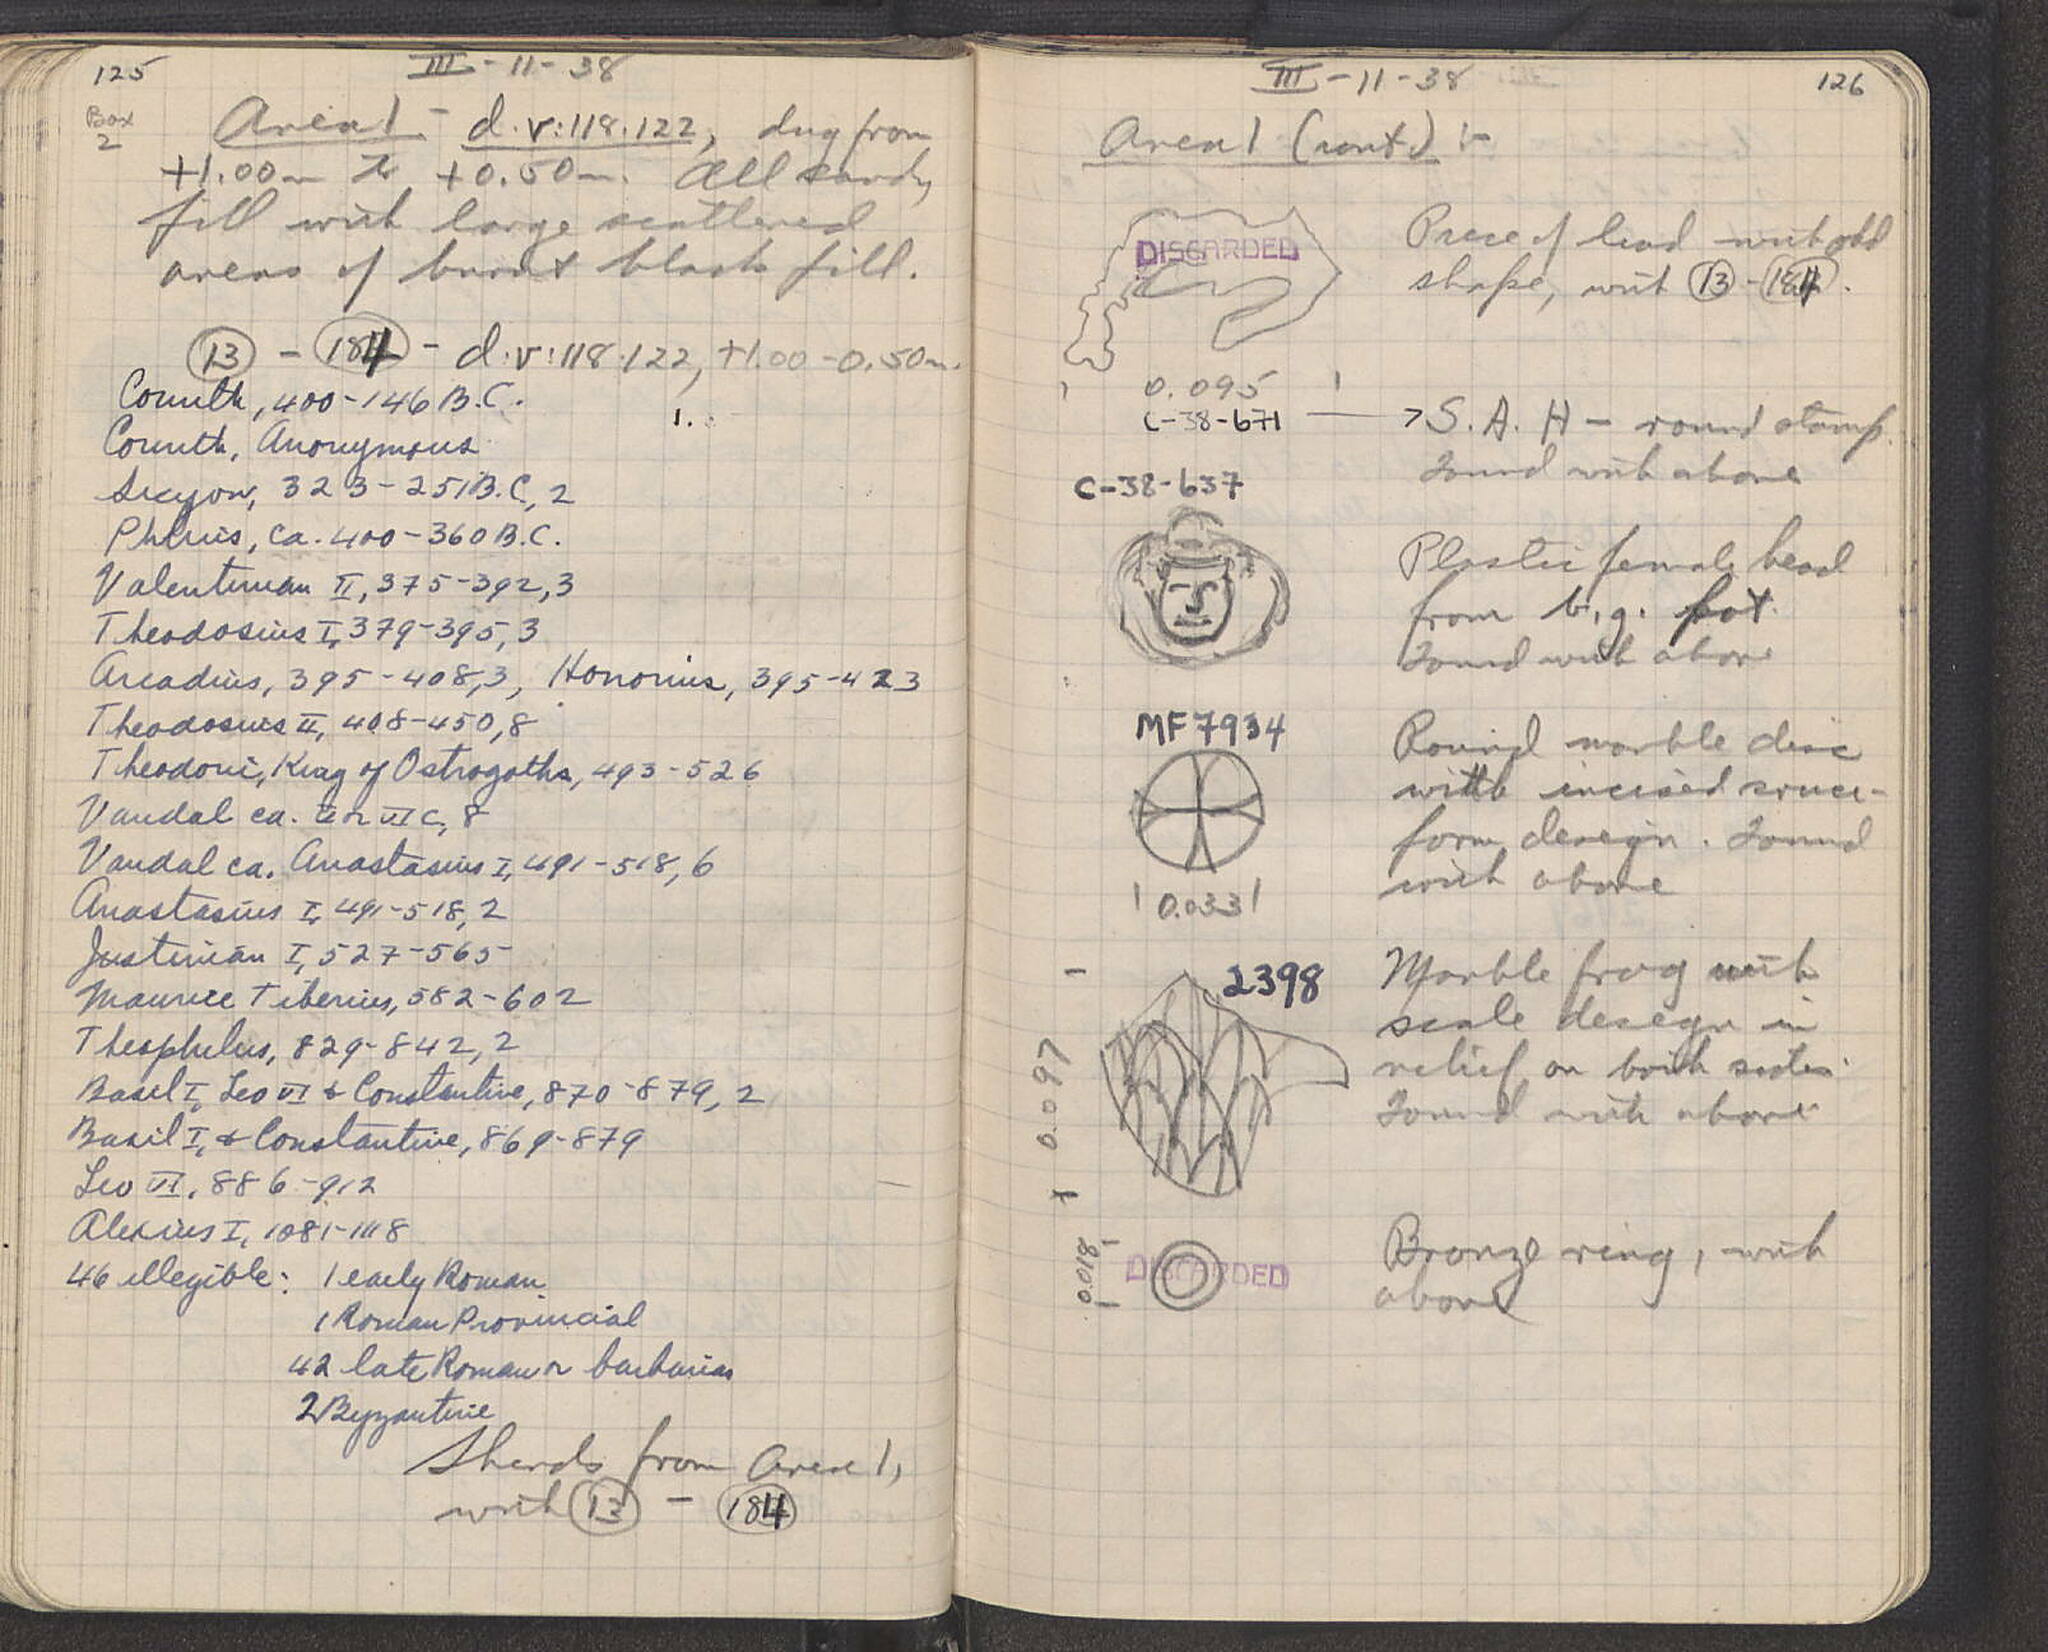 125
III - 11 - 38
Box
2
Area 1 - d.v:118.122, dug from
+1.00m to +0.50m. All sandy
fill with large scattered
areas of burnt black fill.
13 - 184 - d.v:118.122, +1.00-0.50m.
Corinth, 400-146 B.C. 1.
Corinth, Anonymous
Sicyon, 323-251 B.C., 2
Phlius, ca. 400-360 B.C.
Valentinian II, 375-392, 3
Theodosius I, 379-395, 3
Arcadius, 395-408, 3, Honorius, 395-423
Theodosius II, 408-450, 8
Theodoric, King of Ostrogoths, 493-526
Vandal ca. V or VI c, 8
Vandal ca. Anastasius I, 491-518, 6
Anastasius I, 491-518, 2
Justinian I, 527-565
Maurice Tiberius, 582-602
Theophilus, 829-842, 2
Basil I, Leo VI & Constantine, 870-879, 2
Basil I, & Constantine, 869-879
Leo VI, 886-912
Alexius I, 1081-1118
46 illegible: 1 early Roman
1 Roman Provincial
42 late Roman or barbarian
2 Byzantine
Sherds from Area 1,
with 13 - 184
III - 11 - 38
126
Area 1 (cont.) :-
DISCARDED
Piece of lead with odd
shape, with 13 - 184.
0.095
C-38-671 → S.A.H - round stamp.
Found with above
C-38-637
Plastic female head
from b.g. pot.
Found with above
MF 7934
Round marble disc
with incised cruci-
form design. Found
with above
0.033
2398
Marble frag with
scale design in
relief on both sides.
Found with above
0.097
0.018
DISCARDED
Bronze ring, with
above